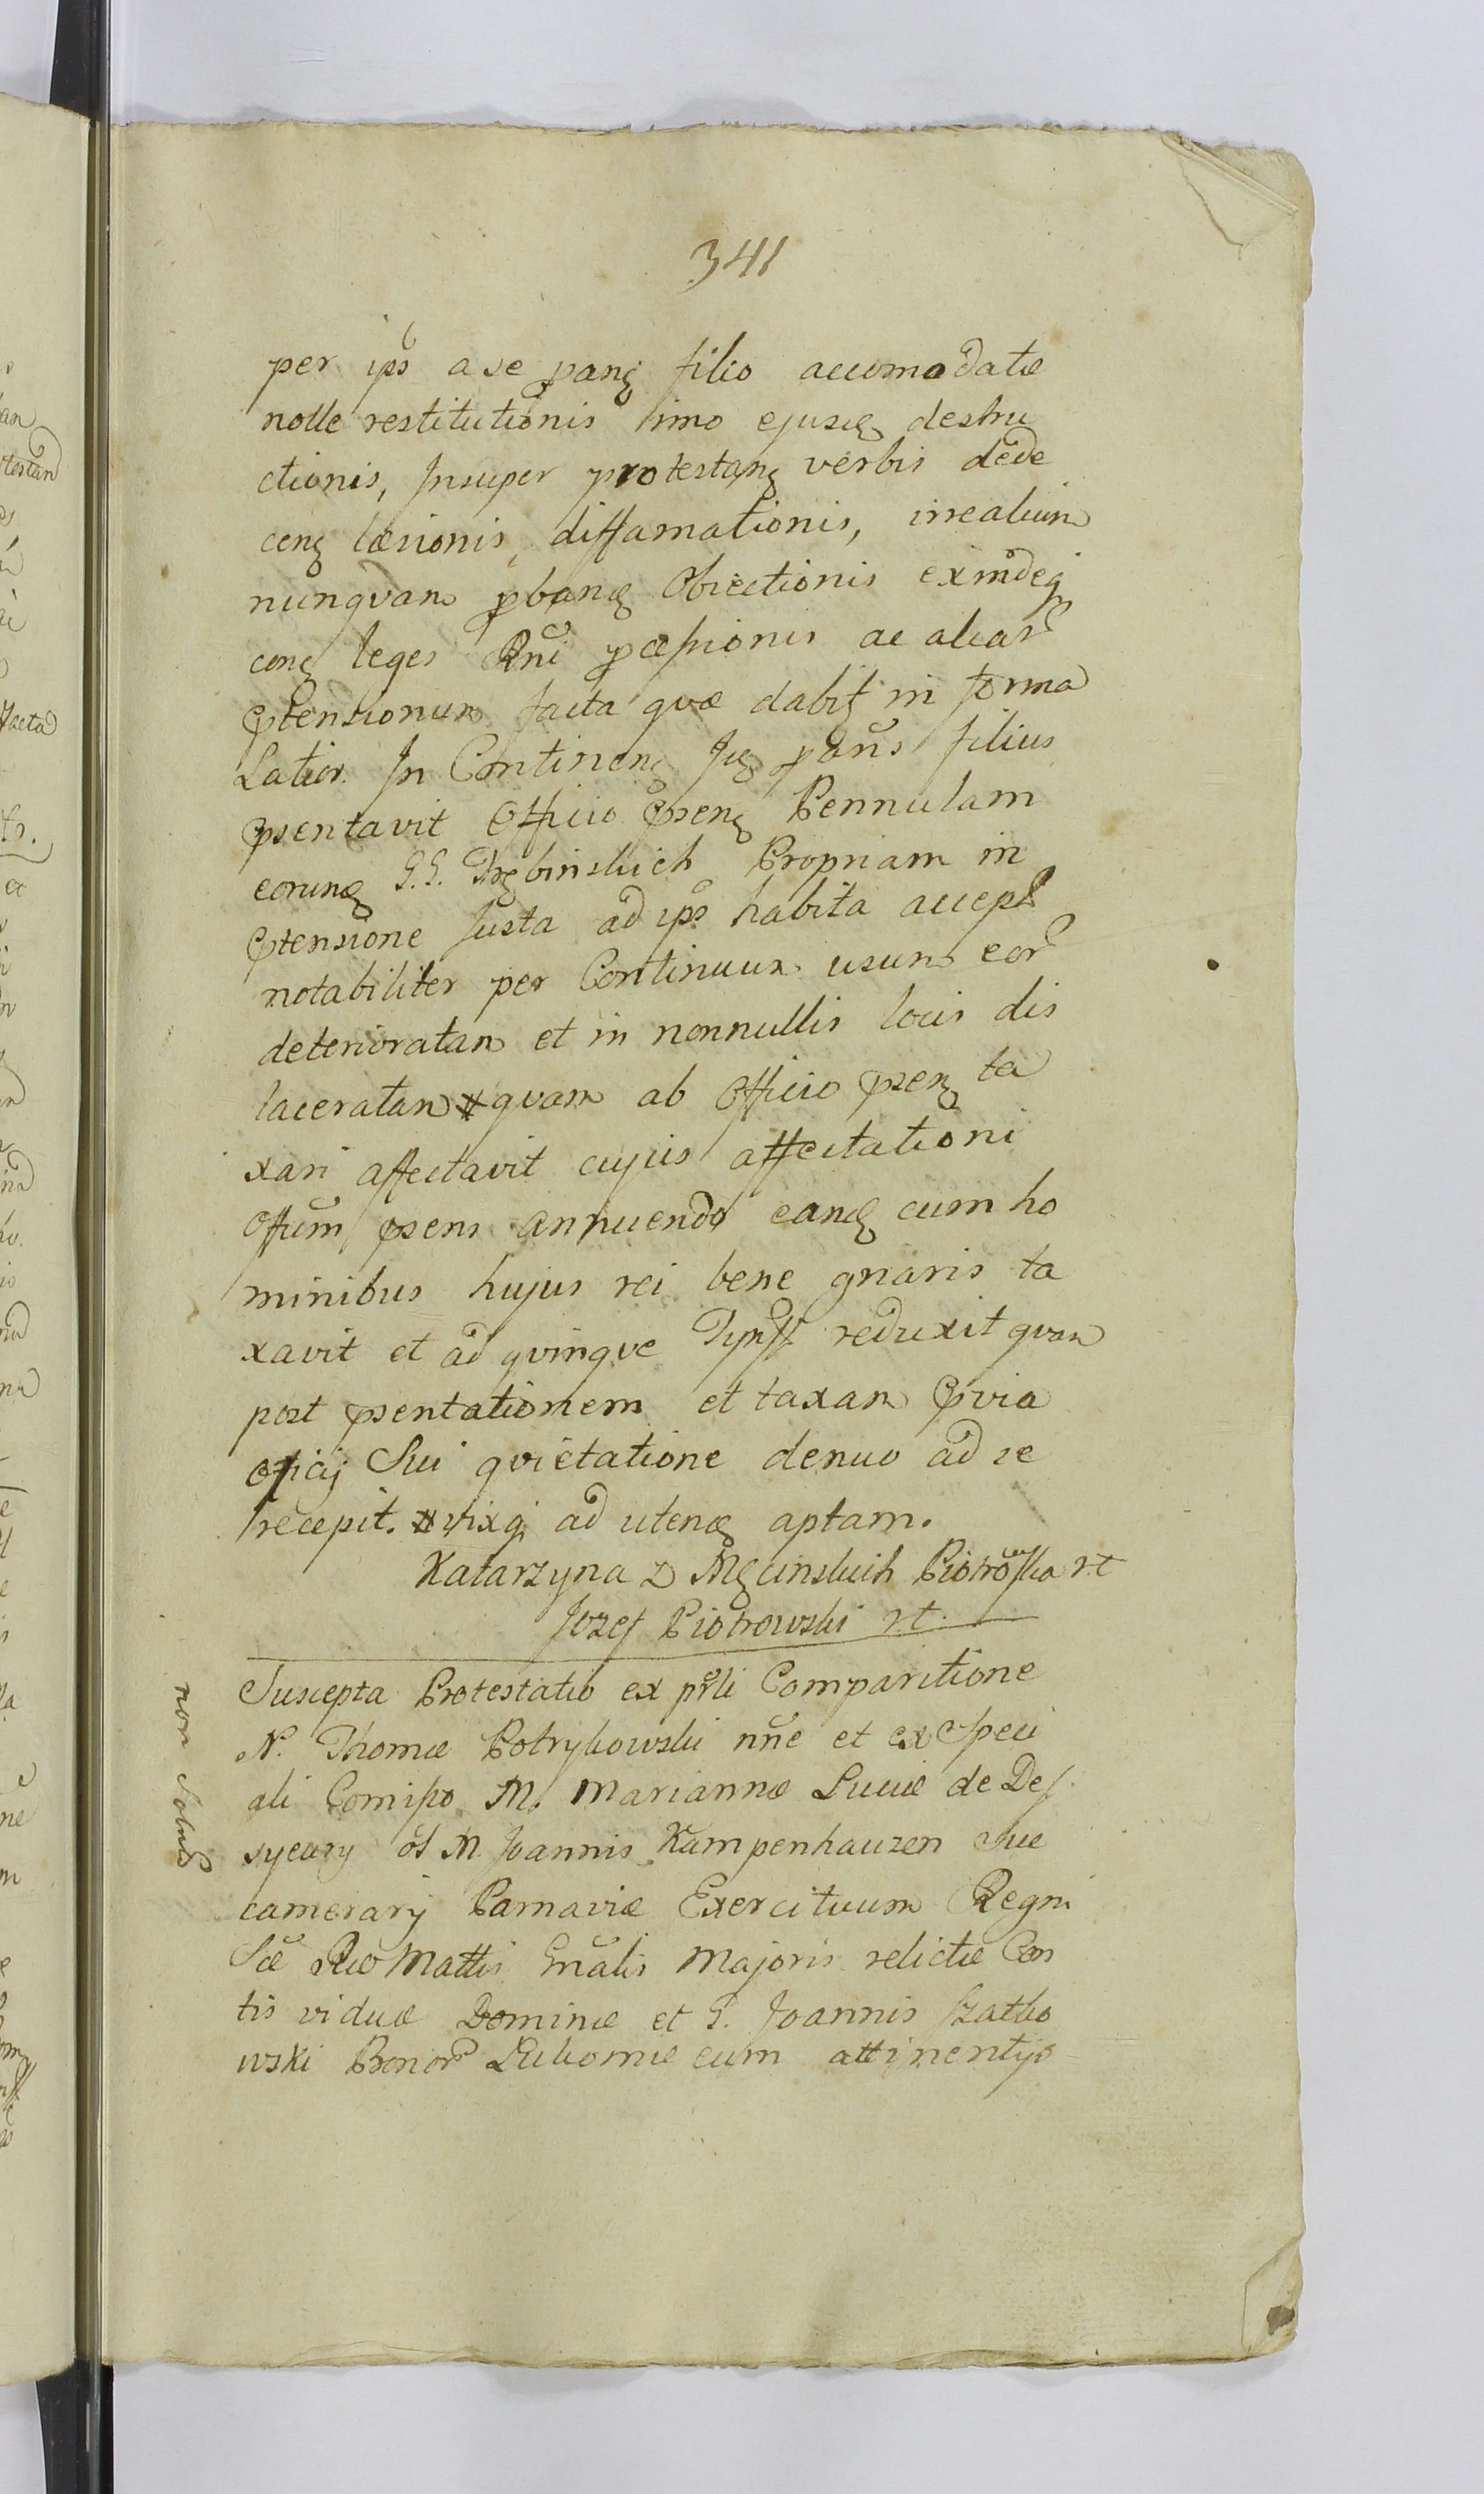 341
per ips a se pang filio accomodatæ
nolle restitutionis imo ejusq destru
ctionis, Insuper protestang verbis dede
ceng læsionis, diffamationis, irrealium
nunqvam pbang Obiectionis exindeq
cong leges Rni pcæssionis ac aliar
ptensionum facta qvæ dabit in forma
Latior. In Continen Iq pans filius
psentavit Officio pseng Pennulam
eorunq G.G. Trębinskich Propriam in
ptensione Justa ad ips habita accept
notabiliter per Continuum usum eor
deterioratam et in nonnullis locis dis
laceratam # qvam ab Officio pseng ta
xari affectavit cujus affectationi
Offum psens annuendo eandq cum ho
minibus hujus rei bene gnaris ta
xavit et ad qvinqve Tynff reduxit qvam
post psentationem et taxam pvia
officij Sui qvietatione denuo ad se
recepit. # vixq ad utendq aptam.
Katarzyna Z Męcinskich Piotrowska rt
Jozef Piotrowski rt.
non Solut
Suscepta Protestatio ex prli Comparitione
N. Thomæ Potrykowski nne et ex Speci
ali Comisso M. Mariannæ Luciæ de Des
syeury ol M. Joannis Kampenhauzen Suc
camerarij Parnaviæ Exercituum Regni
Sæ Ræ Mattis Gnalis Majoris relictæ Con
tis viduæ Dominæ et G. Joannis Szatko
wski Bonor Lukomie cum attinentijs